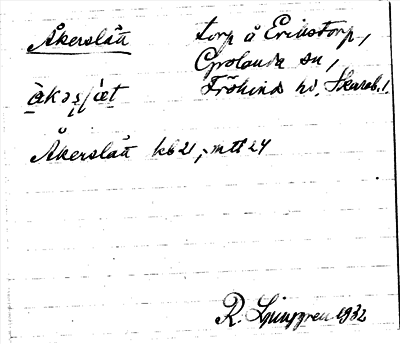 Åkerslätt torp å Erikstorp,
Grolanda sn,
Frökinds hd, Skarab. l.
Åkerslätt kb 21, mtl 24
R. Ljunggren 1932